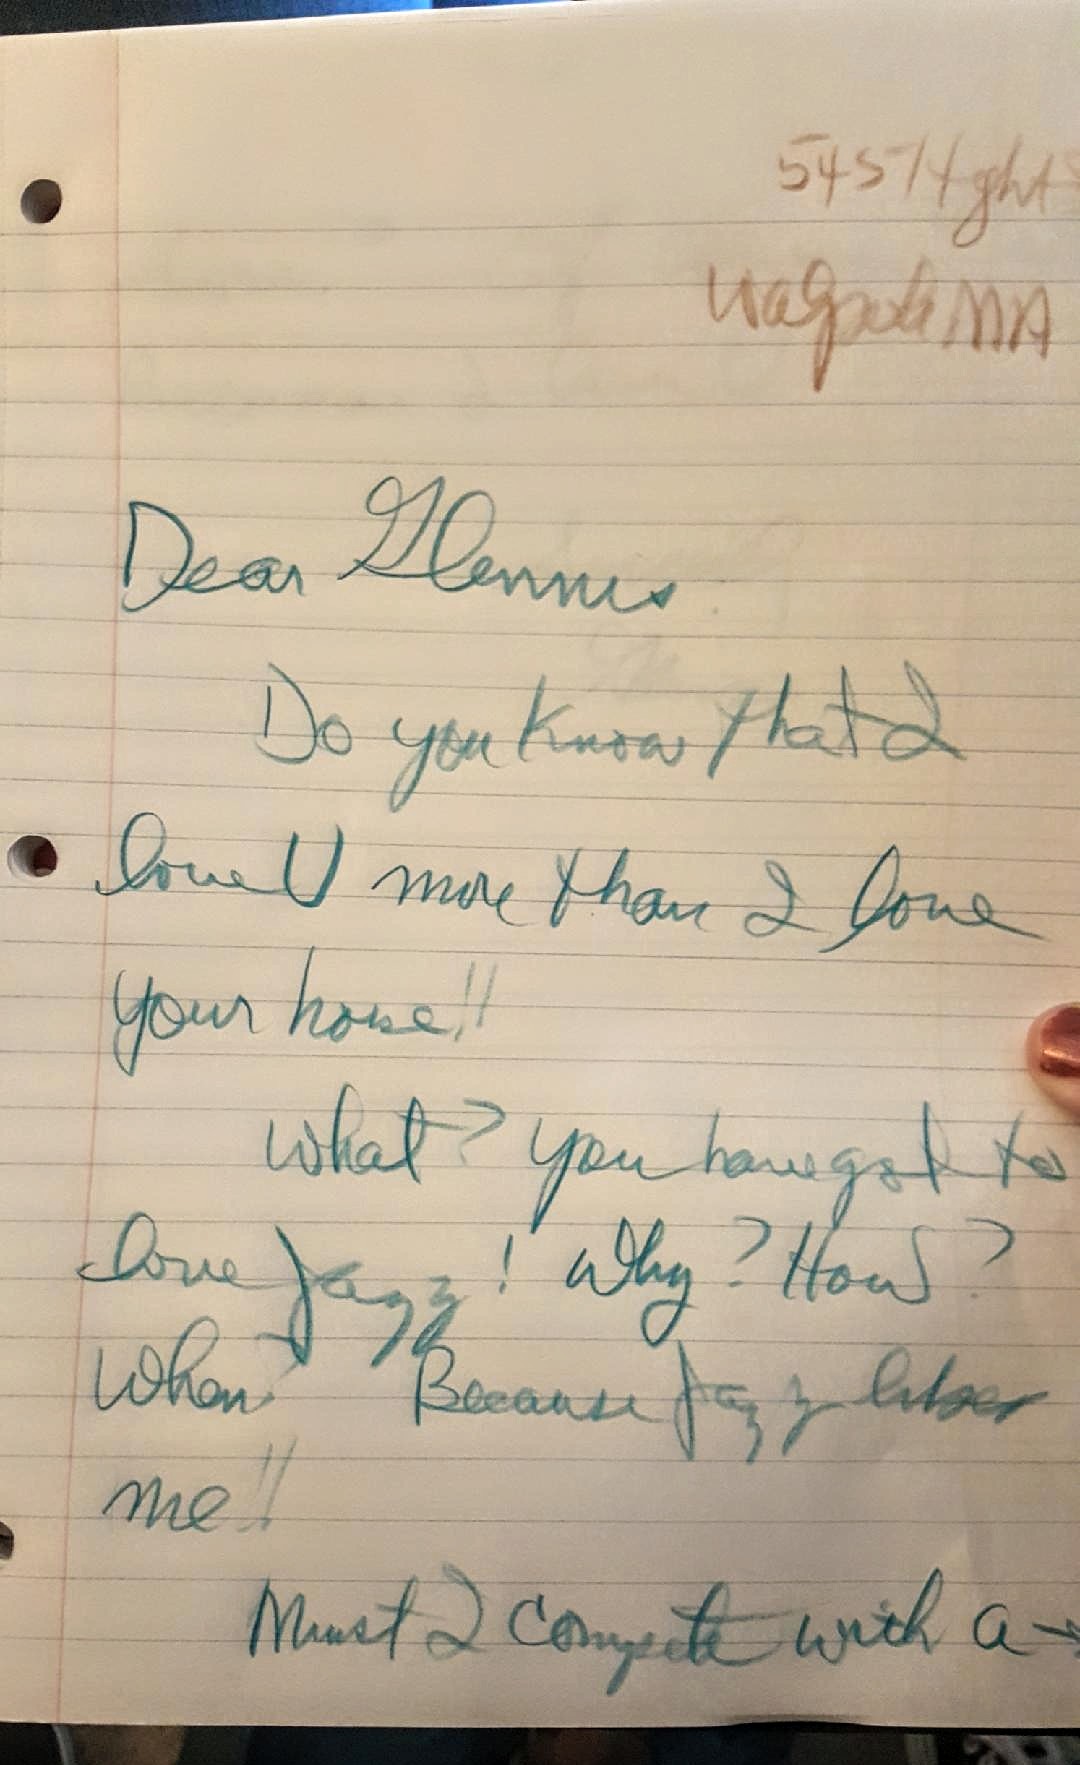 Dear Glennis
Do you know that I
love U more than I love
your horse!!
What? you have got to
love Jazz! Why? How?
When? Because Jazz likes
me!!
Must I compete with a